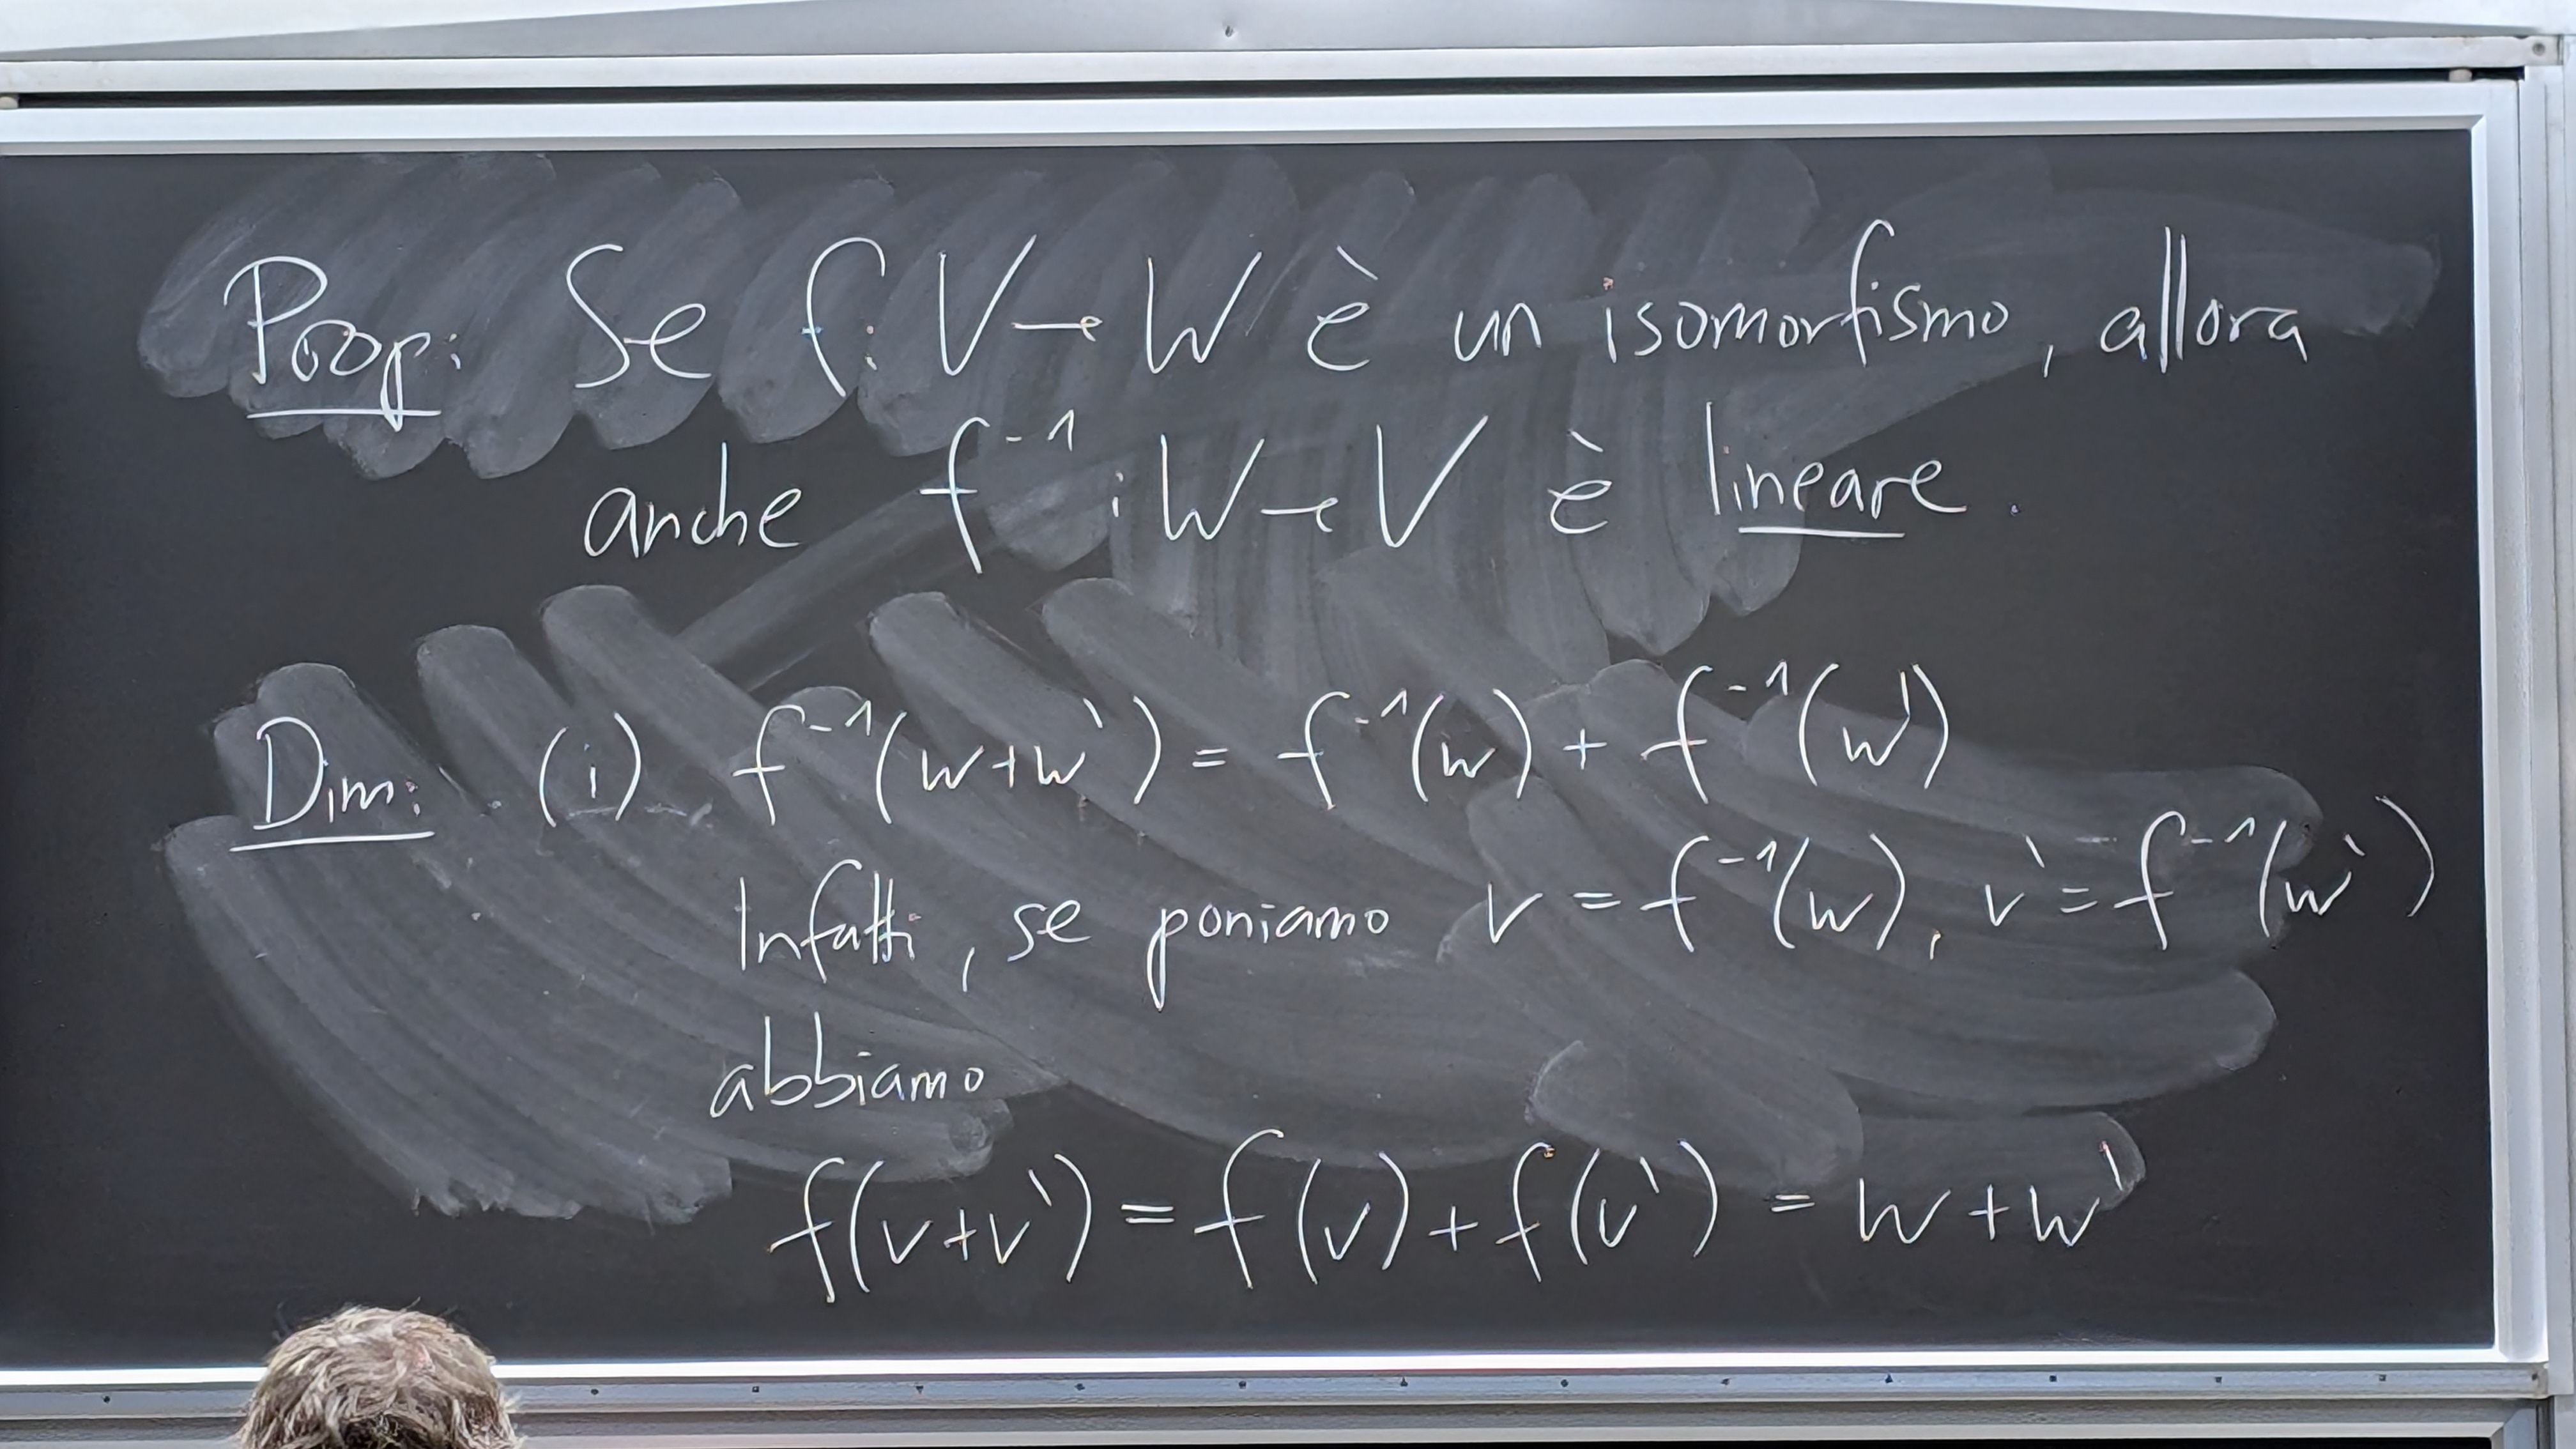 Prop: Se f: V → W è un isomorfismo, allora
anche f⁻¹: W → V è lineare.
Dim: (i) f⁻¹(w+w') = f⁻¹(w) + f⁻¹(w')
Infatti, se poniamo v = f⁻¹(w), v' = f⁻¹(w')
abbiamo
f(v+v') = f(v) + f(v') = w + w'